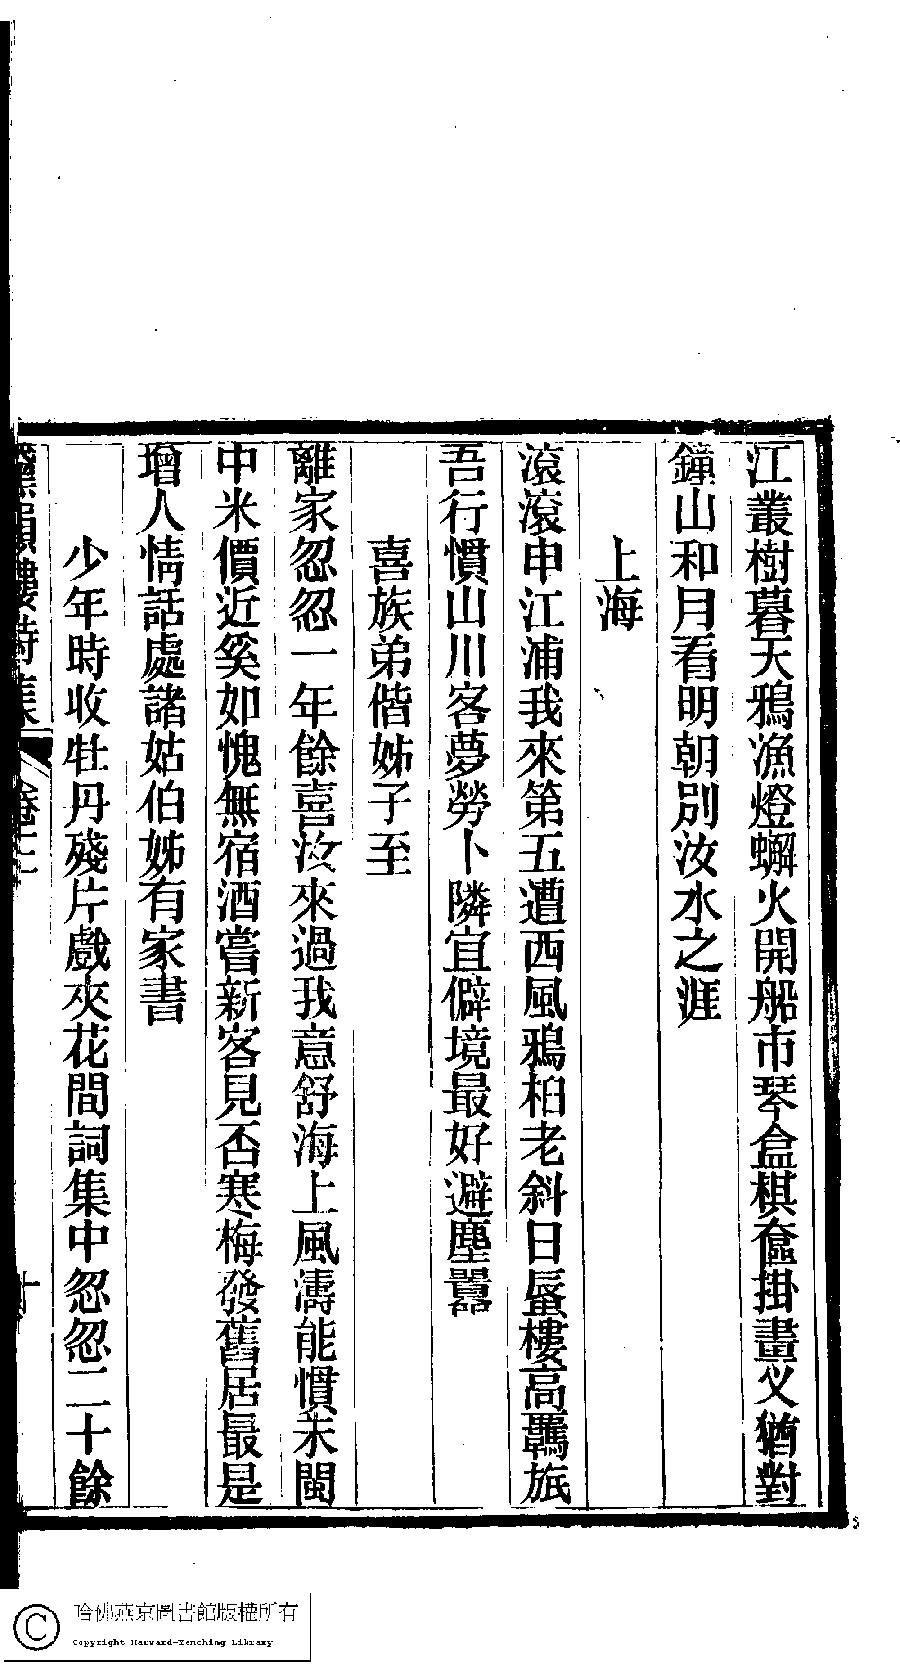 江叢樹暮天鴉漁燈蠏火開船市琴盒棋奩掛畫义猶對
鐘山和月看明朝別汝水之涯
上海
滾滾申江浦我來第五遭西風鴉桕老斜日蜃樓高羈旅
吾行慣山川客夢勞卜隣宜僻境最好避塵囂
喜族弟偕姊子至
離家忽忽一年餘喜汝來過我意舒海上風濤能慣未閩
中米價近奚如愧無宿酒嘗新客見否寒梅發舊居最是
增人情話處諸姑伯姊有家書
少年時收牡丹殘片戲夾花間詞集中忽忽二十餘
樓詩集
卷二
哈佛燕京圖書館版權所有
Copyright Harvard-Yenching Library